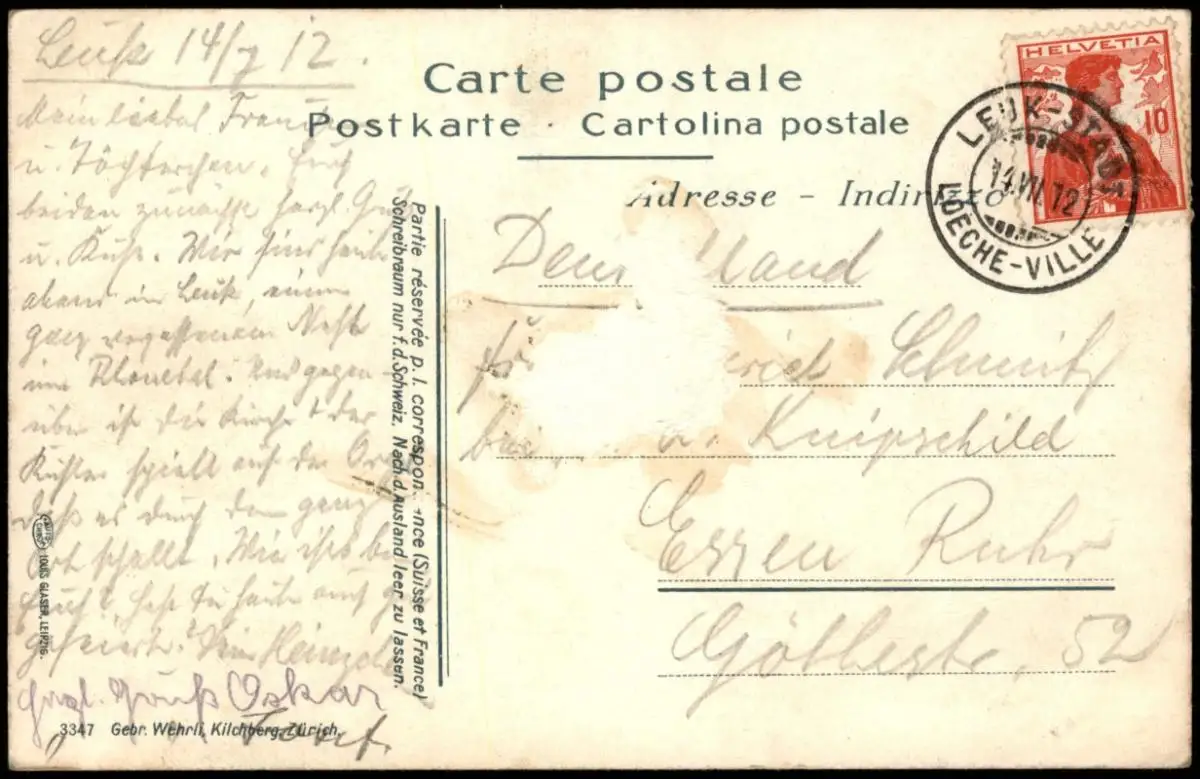 Leuk 14/7 12.
Mein liebes
u. Töchterchen. Euch
beiden zunächst herzl.
u. Kuß. Wir sind heute
abend in Leuk, einem
ganz vergessenen Nest
im Rhonetal. Uns gegen-
über ist die Kirche & der
Küster spielt auf der
daß es durch den ganz
Ort schallt. Wie ists
Euch? Hast Du heute auch
gefeiert? Dein
Hrzl. Gruß Oskar
3347 Gebr. Wehrli, Kilchberg, Zürich.
LOUIS GLASER, LEIPZIG.
Carte postale
Postkarte · Cartolina postale
Adresse – Indirizzo
Partie réservée p. l. correspon nce (Suisse et France)
Schreibraum nur f. d. Schweiz. Nach d. Ausland leer zu lassen.
HELVETIA
10
LEUK-STADT
14.VII.12
LOECHE-VILLE
Deu land
Schmitz
Knipschild
Essen Ruhr
52